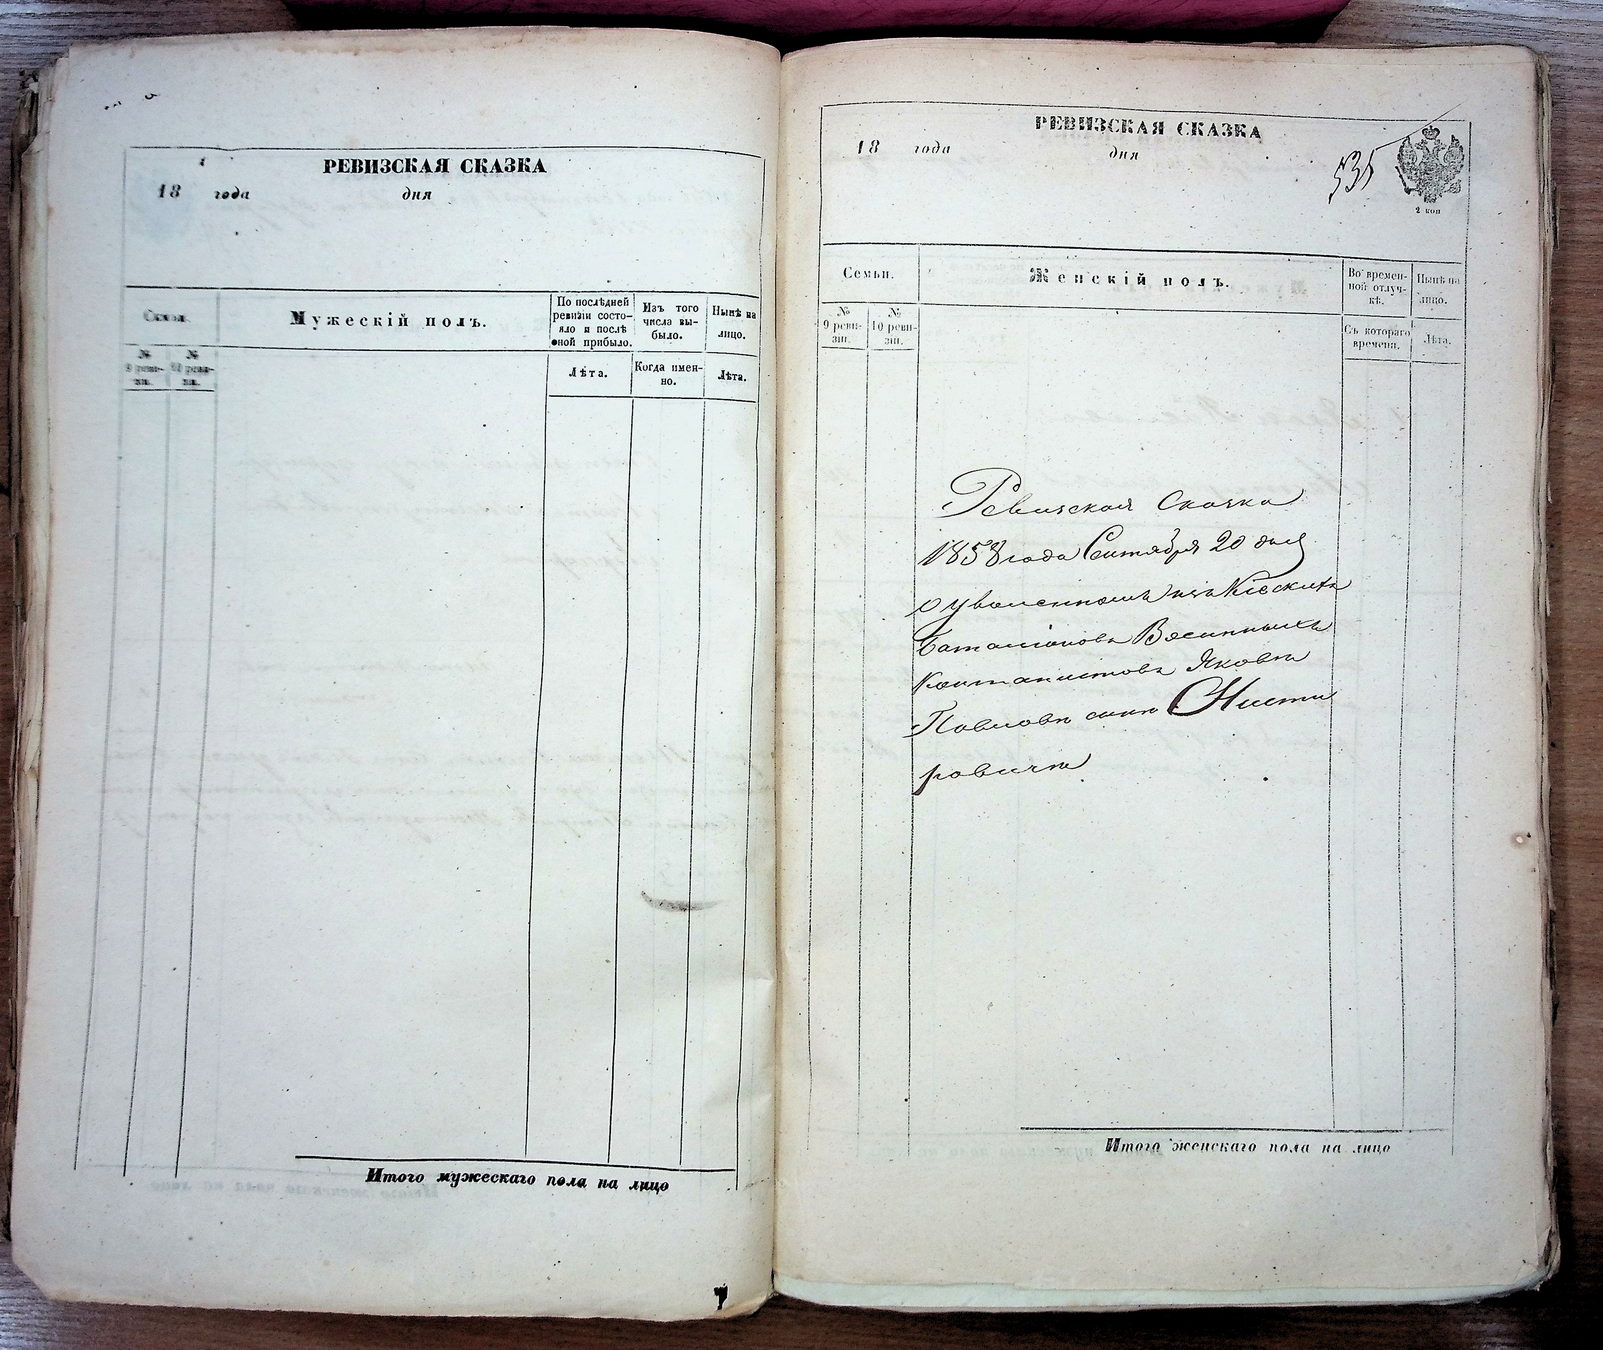 РЕВИЗСКАЯ СКАЗКА
18 года дня
Семьи.
Мужескій полъ.
По послѣдней ревизіи состояло и послѣ оной прибыло.
Изъ того числа выбыло.
Нынѣ на лицо.
№ 9 ревизіи.
№ 10 ревизіи.
Лѣта.
Когда именно.
Лѣта.
Итого мужескаго пола на лицо
РЕВИЗСКАЯ СКАЗКА
18 года дня
535
2 коп
Семьи.
Женскій полъ.
Во временной отлучкѣ.
Нынѣ на лицо.
№ 9 ревизіи.
№ 10 ревизіи.
Съ котораго времени.
Лѣта.
Ревизская Сказка
1858 года Сентября 20 дня
о уволенномъ изъ Кіевскихъ
Баталіоновъ Военныхъ
Кантонистовъ Яковъ
Павловъ сынъ Нести
ровичъ
Итого женскаго пола на лицо